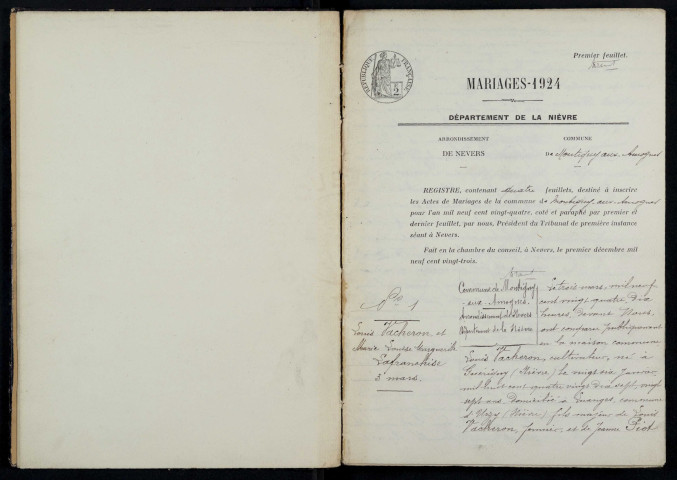 Premier feuillet.
RÉPUBLIQUE FRANÇAISE
2
MARIAGES-1924
DÉPARTEMENT DE LA NIÈVRE
ARRONDISSEMENT
DE NEVERS
COMMUNE
DE Montigny aux Amognes
REGISTRE, contenant quatre feuillets, destiné à inscrire
les Actes de Mariages de la commune de Montigny-aux-Amognes
pour l'an mil neuf cent vingt-quatre, coté et paraphé par premier et
dernier feuillet, par nous, Président du Tribunal de première instance
séant à Nevers.
Fait en la chambre du conseil, à Nevers, le premier décembre mil
neuf cent vingt-trois.
No 1
Louis Vacheron et
Marie Louise Marguerite
Lafranchise
3 mars.
Commune de Montigny
aux Amognes
Arrondissement de Nevers
Département de la Nièvre
Le trois mars, mil neuf
cent vingt quatre, dix
heures, devant Nous,
ont comparu publiquement
en la maison commune
Louis Vacheron, cultivateur, né à
Guérigny (Nièvre) le vingt six janvier
mil huit cent quatre vingt dix sept, vingt
sept ans, Domicilié à commune
d'Urzy (Nièvre) fils majeur de Louis
Vacheron, fermier, et de Jeanne Piot